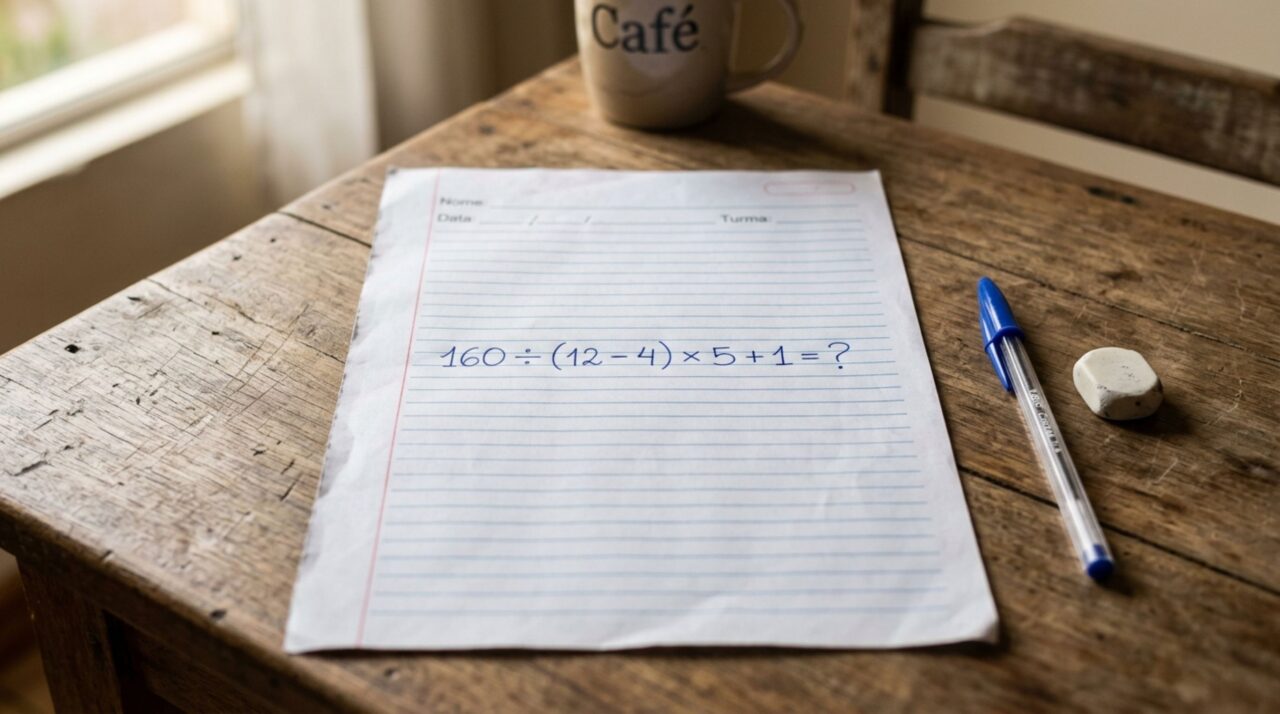 Café
Nome:
Data: / /
Turma:
160 ÷ (12 − 4) × 5 + 1 = ?